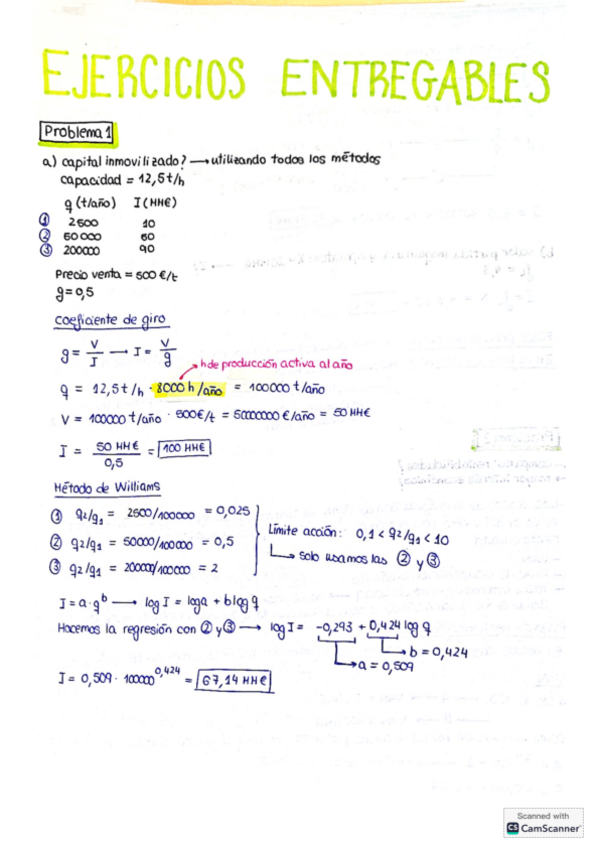 EJERCICIOS ENTREGABLES
Problema 1
a) capital inmovilizado? → utilizando todos los métodos
capacidad = 12,5 t/h
q (t/año) I (MM€)
① 2500 10
② 50000 50
③ 200000 90
Precio venta = 500 €/t
g = 0,5
Coeficiente de giro
g = V/I → I = V/g
h de producción activa al año
q = 12,5 t/h · 8000 h/año = 100000 t/año
V = 100000 t/año · 500€/t = 50000000 €/año = 50 MM€
I = 50 MM€/0,5 = 100 MM€
Método de Williams
① q2/q1 = 2500/100000 = 0,025
② q2/q1 = 50000/100000 = 0,5
③ q2/q1 = 20000/100000 = 2
Límite acción: 0,1 < q2/q1 < 10
↳ solo usamos las ② y ③
I = a · q^b → log I = log a + b log q
Hacemos la regresión con ② y ③ → log I = -0,293 + 0,424 log q
↳ b = 0,424
↳ a = 0,509
I = 0,509 · 100000^0,424 = 67,14 MM€
Scanned with
CS CamScanner